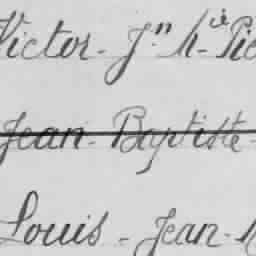 Victor - Jn h-ie Pie
Jean - Baptiste -
Louis - Jean -